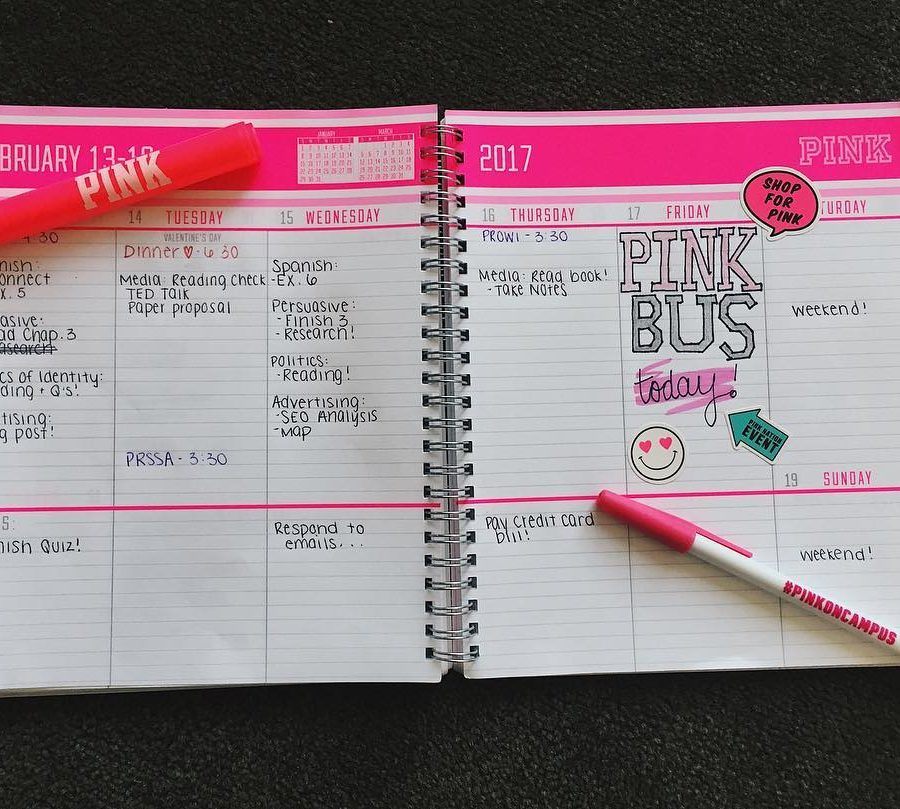 BRUARY 13-1
PINK
JANUARY
MARCH
2017
PINK
14 TUESDAY
15 WEDNESDAY
16 THURSDAY
17 FRIDAY
URDAY
SHOP
FOR
PINK
4:30
nish:
onnect
X. 5
asive:
ad Chap. 3
esearch
cs of Identity:
ding + Q's!
tising:
g post!
S:
nish Quiz!
VALENTINE'S DAY
Dinner ♡ - 6:30
Media: Reading Check
TED Talk
Paper proposal
PRSSA - 3:30
Spanish:
-EX. 6
Persuasive:
- Finish 3
- Research!
Politics:
- Reading!
Advertising:
-SEO Analysis
-Map
Respond to
emails...
PROWL - 3:30
Media: Read book!
- Take Notes
Pay Credit Card
bill!
PINK
BUS
today!
PINK NATION
EVENT
weekend!
19 SUNDAY
weekend!
#PINKONCAMPUS